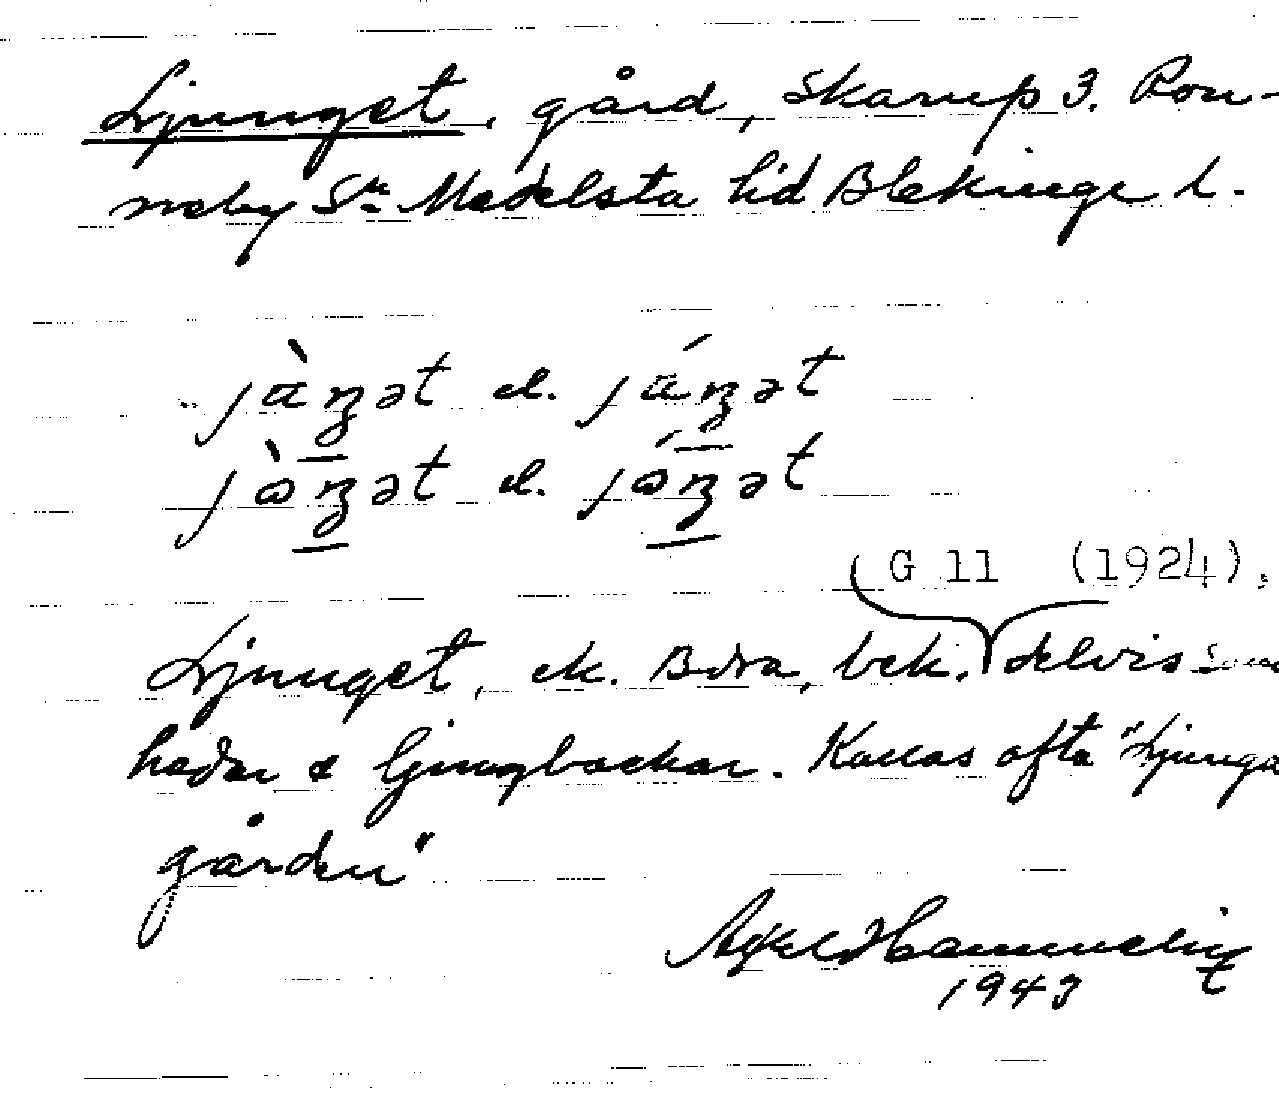 Ljunget, gård, Skarup 3. Ron-
neby Sn. Medelsta hd Blekinge l.
jàŋət el. jáŋət
jòŋət el. jóŋət
G 11 (1924).
Ljunget, ek. Bdra, bek. delvis som
hedar & ljungbackar. Kallas ofta "Ljunga
gården"
Axel
194